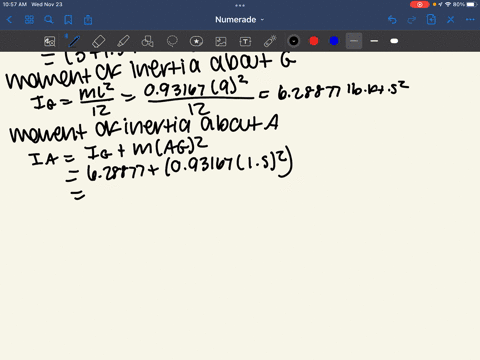 10:57 AM Wed Nov 23
80%
Numerade
moment of inertia about G
I_G = ml²/12 = 0.93167(9)²/12 = 6.28877 lb.ft.s²
moment of inertia about A
I_A = I_G + m(AG)²
= 6.28877 + (0.93167(1.5)²)
=